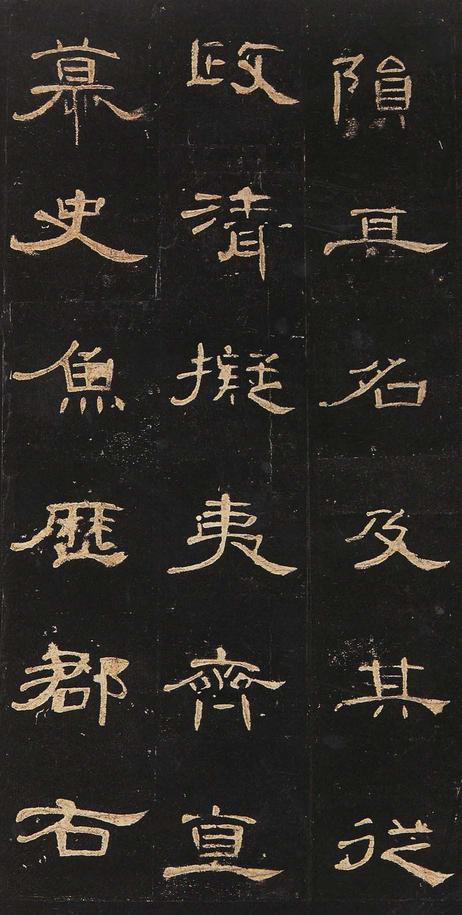 隕且名及其從
政清擬夷齊直
慕史魚歷郡右